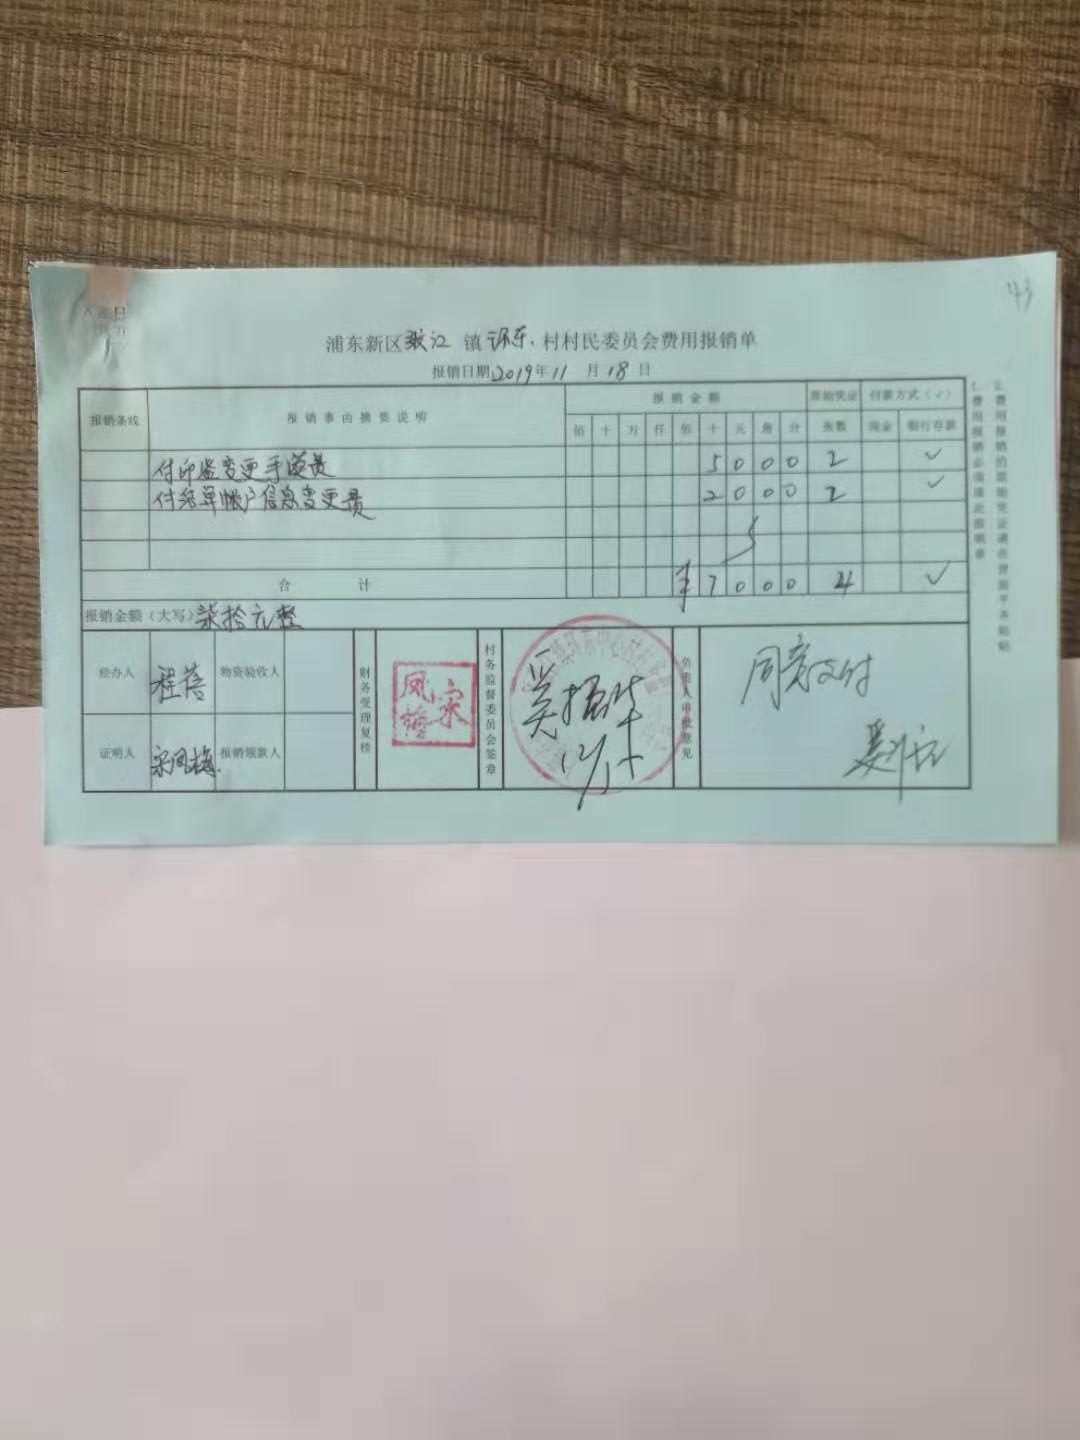 43
浦东新区张江镇环东村村民委员会费用报销单
报销日期2019年11月18日
报销条线 报销事由摘要说明 报销金额 原始凭证 付款方式(√)
佰 十 万 仟 佰 十 元 角 分 张数 现金 银行存款
付印鉴变更手续费 5000 2 √
付 单帐户信息变更费 2000 2 √
合计 ¥7000 4 √
报销金额(大写)柒拾元整
经办人 程蓓 物资验收人
证明人 宋凤梅 报销领款人
财务受理复核
宋凤梅
村务监督委员会签章
吴振华
负责人审批意见
同意支付
1.费用报销必须填此报销单
2.费用报销的原始凭证请在背面平齐粘贴